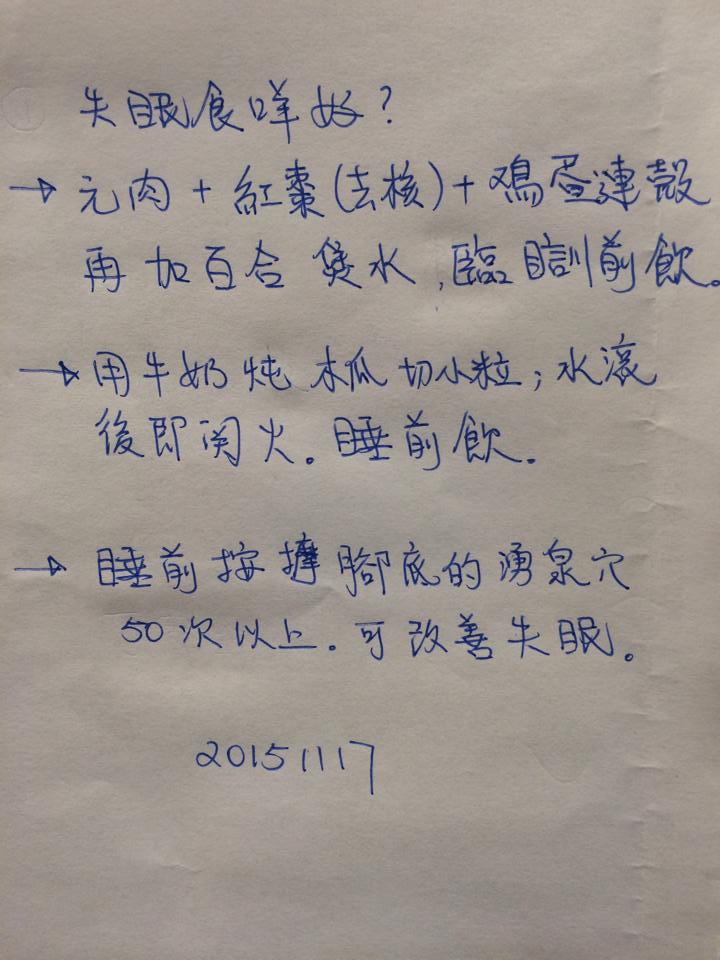 失眠食咩好?
→ 元肉 + 紅棗(去核) + 鷄蛋連殼
再加百合煲水,臨瞓前飲。
→ 用牛奶炖木瓜切小粒;水滾
後即関火。睡前飲。
→ 睡前按摩腳底的湧泉穴
50次以上.可改善失眠。
20151117